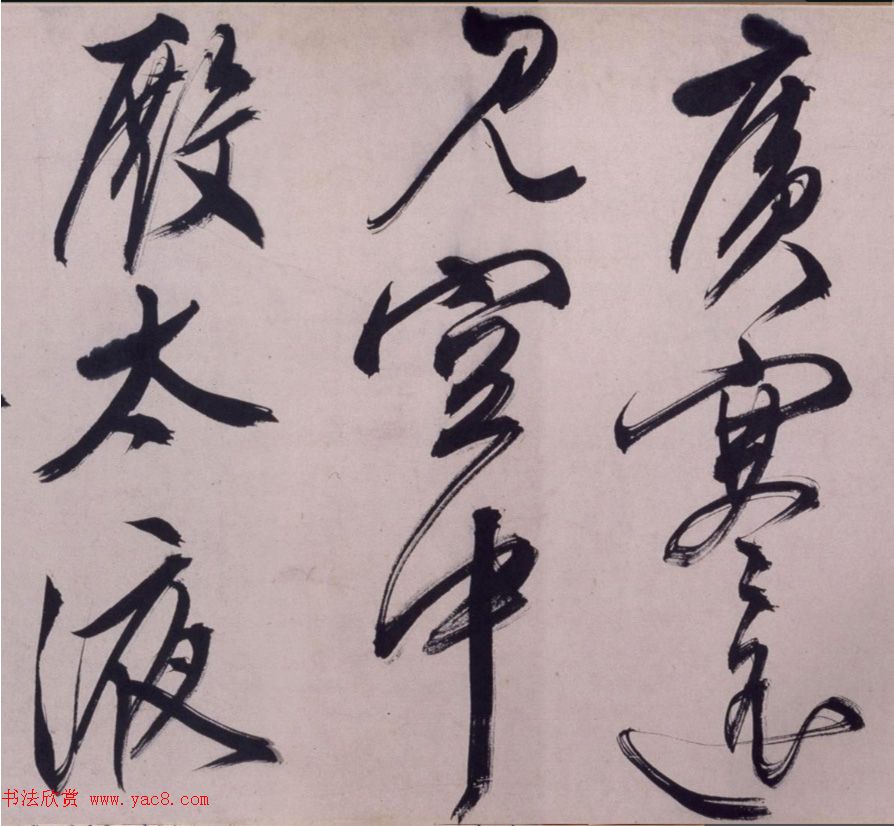 廣寒遙
見空中
殿太液
书法欣赏 www.yac8.com